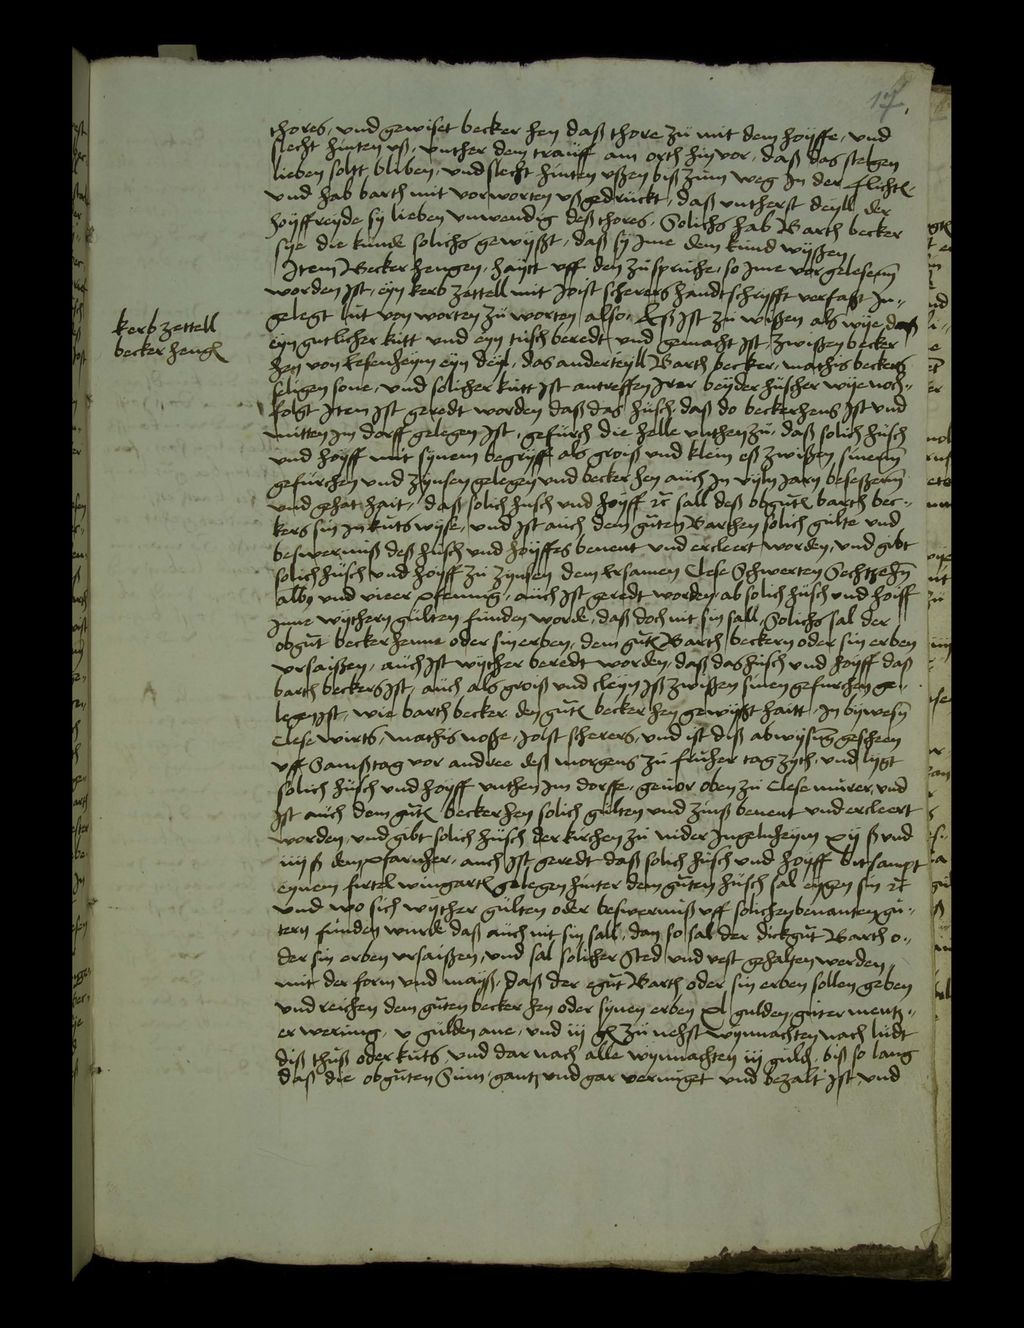 17.
thores, und gewiset becker hen daß thore zü mit dem hoyffe, und
slecht hinten uß, unther dem trauff am orth hin vor, daß das stelgen
lieben soltt bliben, und slecht hinten ußen biß züm weg in der flicht
und hab barth mit vorworten ußgedrückt, daß untherst deyll der
hoyffreyde sy lieben unwendig deß thores, Solichs hab Barth becker
sye die kunde solichs gewyßt, daß sy ime dem kund wyßen
Item Becker hengen, haytt uff den züspruche, so ime vorgelesenn
worden ist, eyn kerb zettell mit Joist scherers handtschryfft verfaßt in-
gelegt lüt von worten zü worten also, Eß ist zü wißen als wye daß
eyn gutlicher kütt und eyn tusch beredt und gemacht ist, zwißen becker
hen von esenheym eyn deyl, das anderteyll Barth becker, mathis beckers
seligen sone, und solicher kutt ist antreffen irer beyder huscher wye noch-
folgt Item ist geredt worden daß das hüsch daß do beckerhens ist und
mitten im dorff gelegen ist, gefürch die helle unthen zü, daß solich hüsch
und hoyff mit synem begryff als groiß und klein eß zwißen sinenn
gefurchen und zynsen gelegen und becker hen auch in vyln jarn beseßenn
und gehat hait, daß solich husch und hoyff ꝛc sall deß obgutt barth bec-
kers sin in kuts wyse, und ist auch dem guten Barthen solich gulte und
beswerniß deß husch und hoyffes benent und ercleert worden, und gibt
solich hüsch und hoyff zü zynsen dem ersamen Clese Schwerten Sechzehn
alb und vieer pfennig, auch ist geredt worden ab solich hüsch und hoiff
inne wythern gülten funden worde, daß doch nit sin sall, Solichs sal der
obgut becker henne oder sin erben, dem gut Barth beckern oder sin erben
ursaißen, auch ist wyther beredt worden, daß das hüsch und hoyff daß
barth beckers ist, auch als groiß und cleyn iß zwißen sinen gefurchen ge-
legen ist, wie barth becker den gut becker hen gewyßt haitt, in bywesn
Clese wirts, mathis noße, Joist scherers, und ist diß abwysung gescheen
uff Samßtag vor andree deß morgens zü früher tag zyth, und lygt
solich hüsch und hoyff unthen im dorffe, gevor oben zü Clese mürer, und
ist auch dem gut beckerhen solich gülten und zinß benent und ercleert
worden, und gibt solich hüsch der kirchen zü nider ingelnheym xij ß und
iiij ß dem pfarrher, auch ist geredt daß solich hüsch und hoyff mitsampt
eynem firtel wingartß gelegen hinter dem guten hüsch sal eygen sin ꝛc
und wo sich wyther gülten oder beswerniß uff solichen benanten gü-
tern funden wurde daß auch nit sin sall, dan so sal der dickgut Barth o-
der sin erben ursaißen, und sal solicher Sted und vest gehalten werden
mit der form und maiß, daß der egut Barth oder sin erben sollen geben
und reichen dem guten becker hen oder synen erben xl gulden, guter mentz-
er werung, v gülden ane, und iij gl zü nehst wynnachten nach lüdt
diß thuß oder kuts und dar nach alle wynnachten iij guld, biß so lang
daß die obguten Sum, gantz und gar vernuget und bezalt ist und
kerbzettell
becker heng